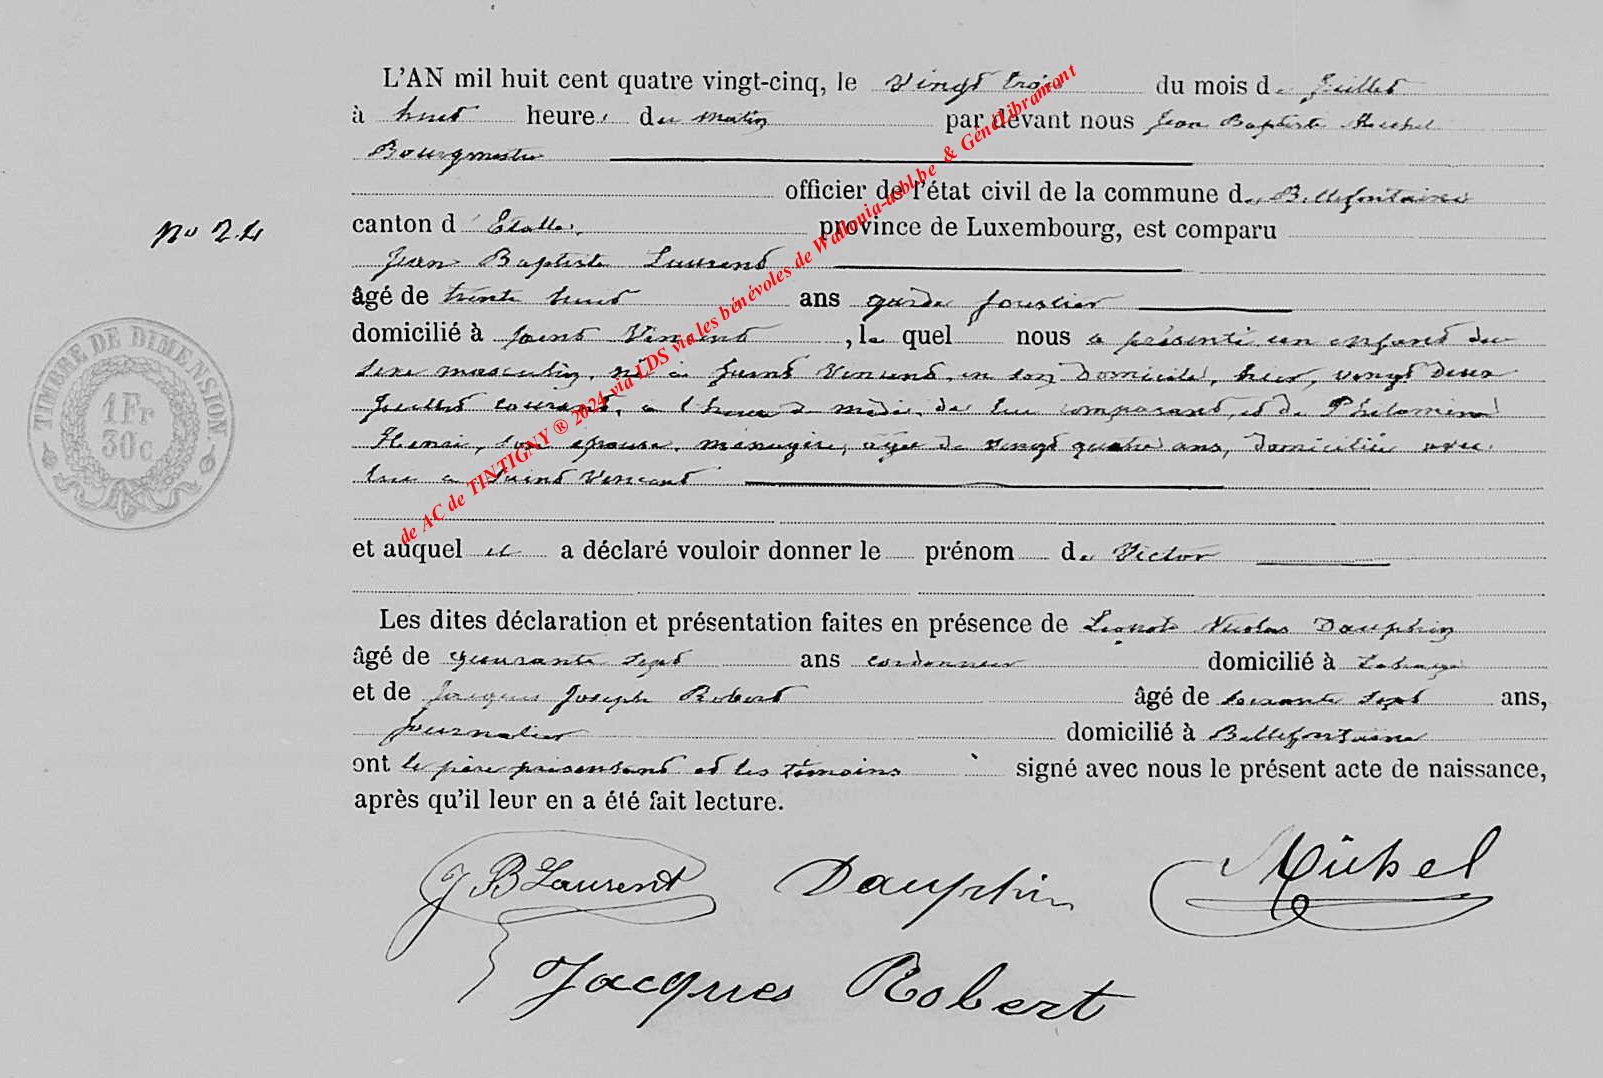 L'AN mil huit cent quatre vingt-cinq, le vingt trois du mois de Juillet
à huit heures du matin par devant nous Jean Baptiste Michel
Bourgmestre
officier de l'état civil de la commune de Bellefontaine
No 24
canton d'Etalle, province de Luxembourg, est comparu
Jean Baptiste Laurent
âgé de trente huit ans garde forestier
domicilié à Saint Vincent, le quel nous a présenté un enfant du
sexe masculin, né à Saint Vincent, en son domicile, hier, vingt deux
Juillet courant, à l'heure de midi, de lui comparant, et de Philomène
Henri, son épouse, ménagère, agée de vingt quatre ans, domiciliée avec
lui à Saint Vincent
et auquel il a déclaré vouloir donner le prénom de Victor
Les dites déclaration et présentation faites en présence de Nicolas Dauphin
âgé de quarante sept ans cordonnier domicilié à Lahage
et de Jacques Joseph Robert âgé de soixante sept ans,
journalier domicilié à Bellefontaine
ont le père présentant et les témoins signé avec nous le présent acte de naissance,
après qu'il leur en a été fait lecture.
J B Laurent Dauphin Michel
Jacques Robert
TIMBRE DE DIMENSION
1 Fr
30 c
de AC de TINTIGNY ® 2024 via LDS via les bénévoles de Wallonia-asbl.be & GénéLibramont